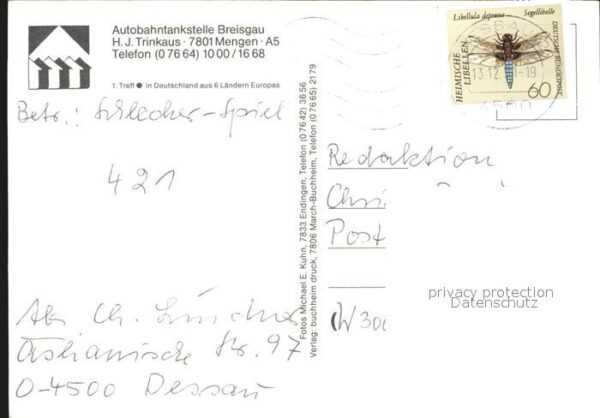 Autobahntankstelle Breisgau
H. J. Trinkaus · 7801 Mengen · A5
Telefon (0 76 64) 10 00 / 16 68
1. Treff in Deutschland aus 6 Ländern Europas
Betr.: Schlecker-Spiel
421
Abs. Ch.
Askanische Str. 97
O-4500 Dessau
Fotos Michael E. Kuhn, 7833 Endingen, Telefon (0 76 42) 36 56
Verlag: buchheim druck, 7806 March-Buchheim, Telefon (0 76 65) 21 79
Libellula depressa Segellibelle
HEIMISCHE
LIBELLEN
DEUTSCHE BUNDESPOST
60
13.12
-19
4500
Redaktion
Chri
Post
W 300
privacy protection
Datenschutz